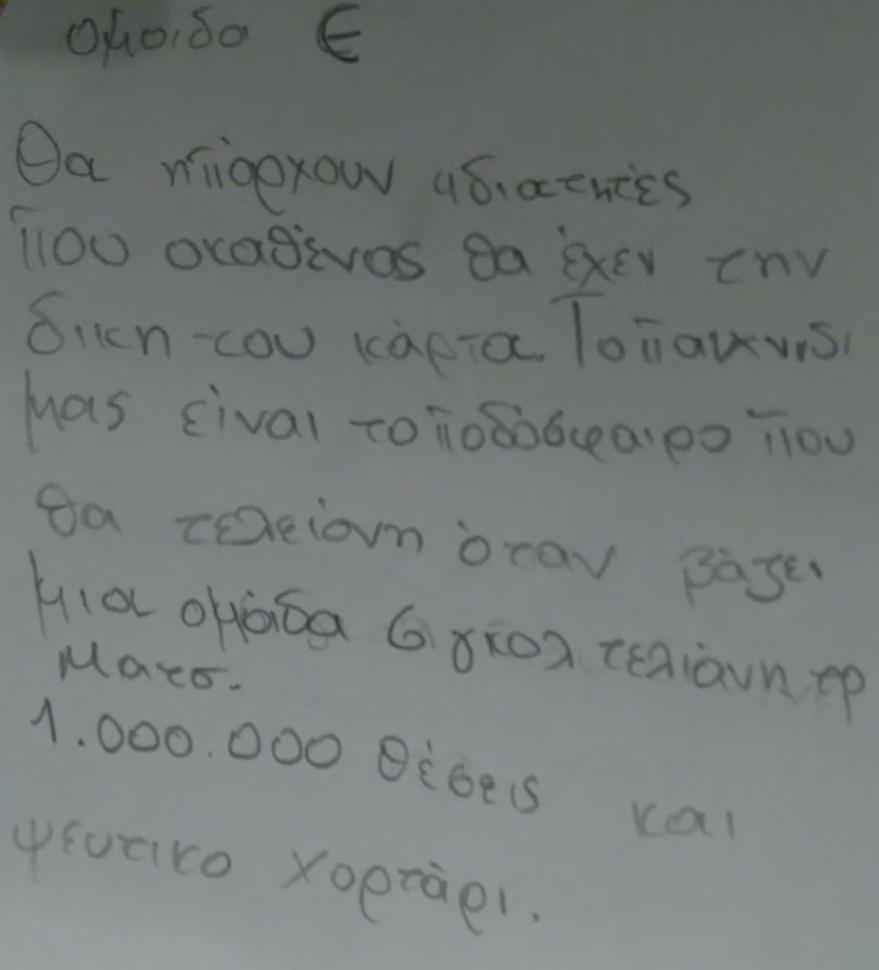 ομοιδα Ε
Θα ηπιάρχουν αδιατητές
που οκαθένας θα έχεν την
δικη του κάρτα. Τοπαιχνιδι
μας είναι τοποδόσφαιρο που
θα τελειόνη όταν βάζει
μια ομάδα 6 γκολ τελιάνη το
ματσ.
1.000.000 θέσεις και
ψευτικο χορτάρι.